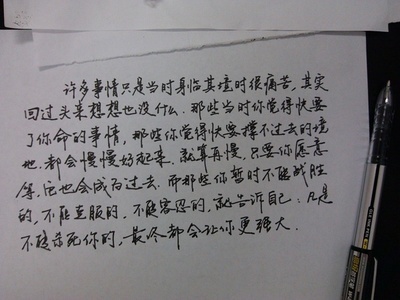 许多事情只是当时身临其境时很痛苦,其实
回过头来想想也没什么.那些当时你觉得快要
了你命的事情,那些你觉得快要撑不过去的境
地.都会慢慢好起来.就算再慢,只要你愿意
等,它也会成为过去.而那些你暂时不能战胜
的,不能克服的,不能容忍的,就告诉自己:凡是
不能杀死你的,最终都会让你更强大.